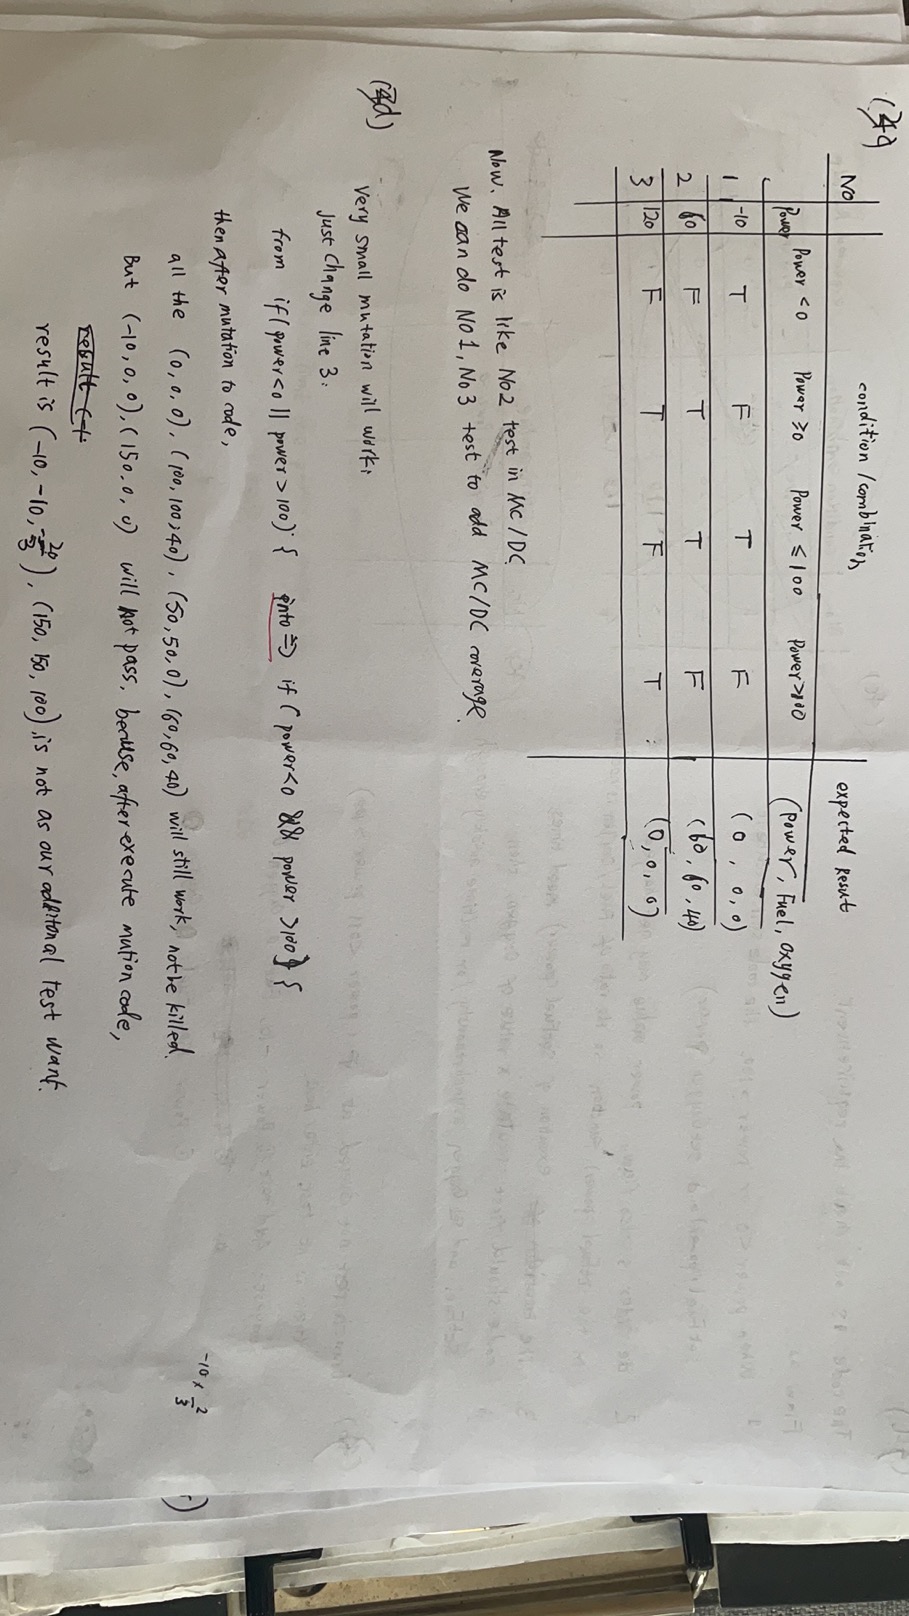 (4c)
No condition/combination expected result
Power Power <0 Power ≥0 Power ≤100 Power>100 (Power, Fuel, oxygen)
1 -10 T F T F (0, 0, 0)
2 60 F T T F (60, 60, 40)
3 120 F T F T (0, 0, 0)
Now. All test is like No2 test in MC/DC
We can do No1, No3 test to add MC/DC coverage.
(4d)
Very small mutation will work:
Just change line 3:
from if(power<0 || power>100) { into => if (power<0 && power >100) {
then after mutation to code,
all the (0,0,0), (100,100,40), (50,50,0), (60,60,40) will still work, not be killed.
But (-10,0,0), (150,0,0) will not pass, because, after execute mution code,
result is (-10, -10, -20/3), (150, 150, 100), is not as our additonal test want.
-10 × 2/3